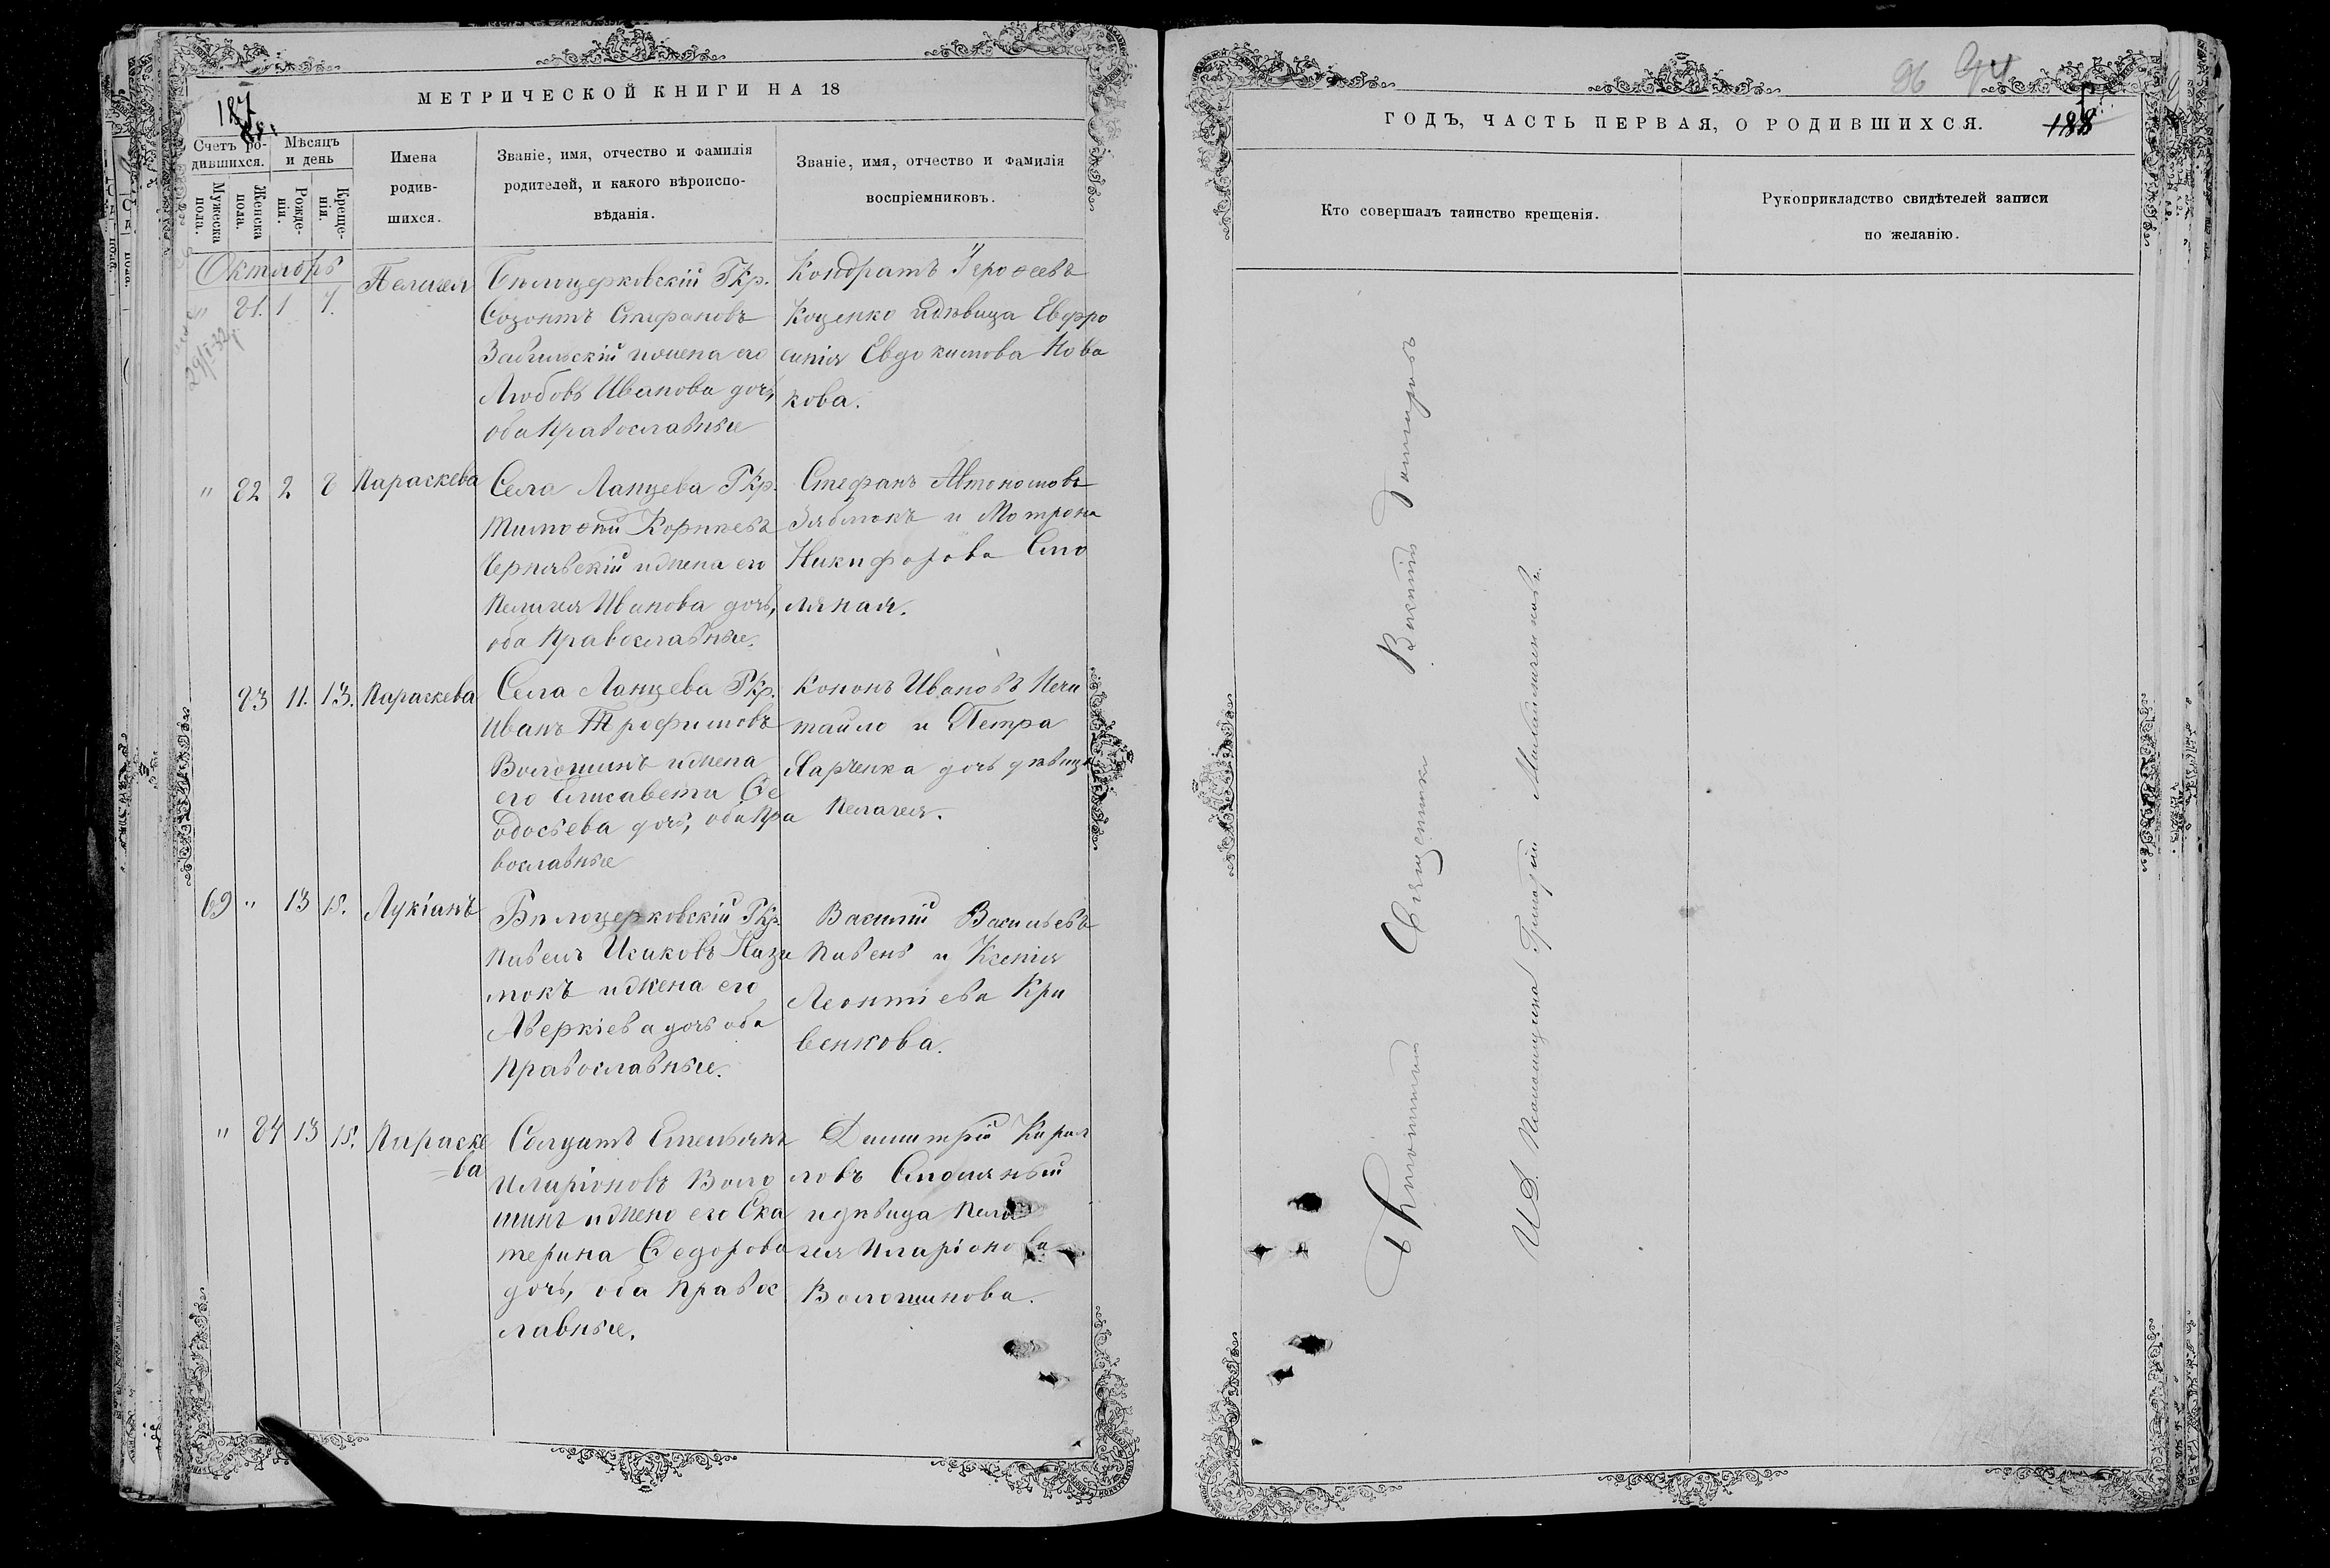 МЕТРИЧЕСКОЙ КНИГИ НА 18
187
Счетъ ро-
дившихся.
Мужеска
пола.
Женска
пола.
Мѣсяцъ
и день
Рожде-
нія.
Креще-
нія.
Имена
родив-
шихся.
Званіе, имя, отчество и фамилія
родителей, и какого вѣроиспо-
вѣданія.
Званіе, имя, отчество и фамилія
воспріемниковъ.
Октябрь
" 81. 1 7.
Пелагея
Бѣлоцерковскій Гкр.
Созонтъ Стефановъ
Забѣльскій и жена его
Любовь Иванова дочь,
оба Православные
Кондратъ Іероѳеевъ
Коценко и дѣвица Евфро
синія Евдокимова Нова
кова.
" 82 2 8
Параскева
Села Ланцева Гкр.
Тимоѳей Корнѣевъ
Чернявскій и жена его
Пелагея Иванова дочь,
оба Православные.
Стефанъ Автономовъ
Зяблокъ и Мотрона
Никифорова Сто
ляная.
83 11. 13.
Параскева
Села Ланцева Гкр.
Иванъ Трофимовъ
Волошинъ и жена
его Елисавета Ѳе
одосьева дочь, оба Пра
вославные
Кононъ Ивановъ Нечи
тайло и Петра
Харченка дочь дѣвица
Пелагея.
69 " 13 15.
Лукіанъ
Бѣлоцерковскій Гкр.
Павелъ Исаковъ
и жена его
Аверкіева дочь оба
Православные.
Василій Васильевъ
Пивень и Ксенія
Леонтіева Кри
венкова.
" 84 13 15.
Параске
=ва
Солдатъ Емельянъ
Иларіоновъ Воло
шинъ и жена его Ека
терина Ѳедорова
дочь, оба Правос
лавные.
Димитрій Кирил
ловъ Столяный
и дѣвица Пела
гея Иларіонова
Волошинова.
96
ГОДЪ, ЧАСТЬ ПЕРВАЯ, О РОДИВШИХСЯ.
188
Кто совершалъ таинство крещенія.
Рукоприкладство свидѣтелей записи
по желанію.
Священникъ
И. Д. Псаломщика Григорій